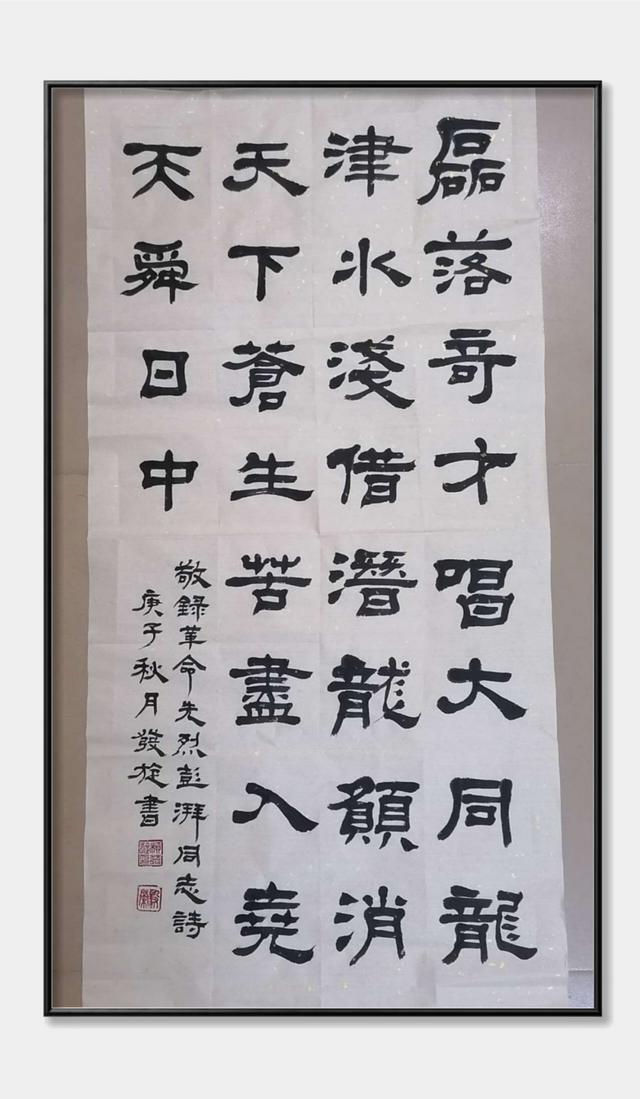 磊落竒才唱大同龍
津水淺借潛龍願消
天下蒼生苦盡入堯
天舜日中
敬錄革命先烈彭湃同志詩
庚子秋月發旋書